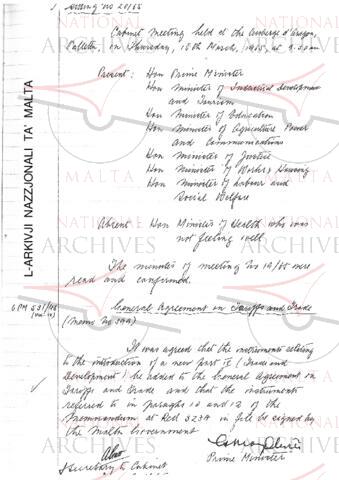 Sitting No 20/65
Cabinet Meeting held at the Auberge d'Aragon,
Valletta, on Thursday, 18th March, 1965, at 9.30 am
Present: Hon Prime Minister
Hon Minister of Industrial Development
and Tourism
Hon Minister of Education
Hon Minister of Agriculture Power
and Communications
Hon Minister of Justice
Hon Minister of Works & Housing
Hon Minister of Labour and
Social Welfare
Absent Hon Minister of Health who was
not feeling well
The minutes of meeting No 19/65 were
read and confirmed.
General Agreement on Tariffs and Trade
It was agreed that the instruments relating
to the introduction of a new part (Trade and
Development) to be added to the General Agreement on
Tariffs and Trade and that the instruments
referred to in paragraphs 10 and 12 of the
Memorandum at Red 323A in file be signed by
the Malta Government
Prime Minister
Secretary to Cabinet
L-ARKIVJI NAZZJONALI TA' MALTA
NATIONAL
MALTA
ARCHIVES